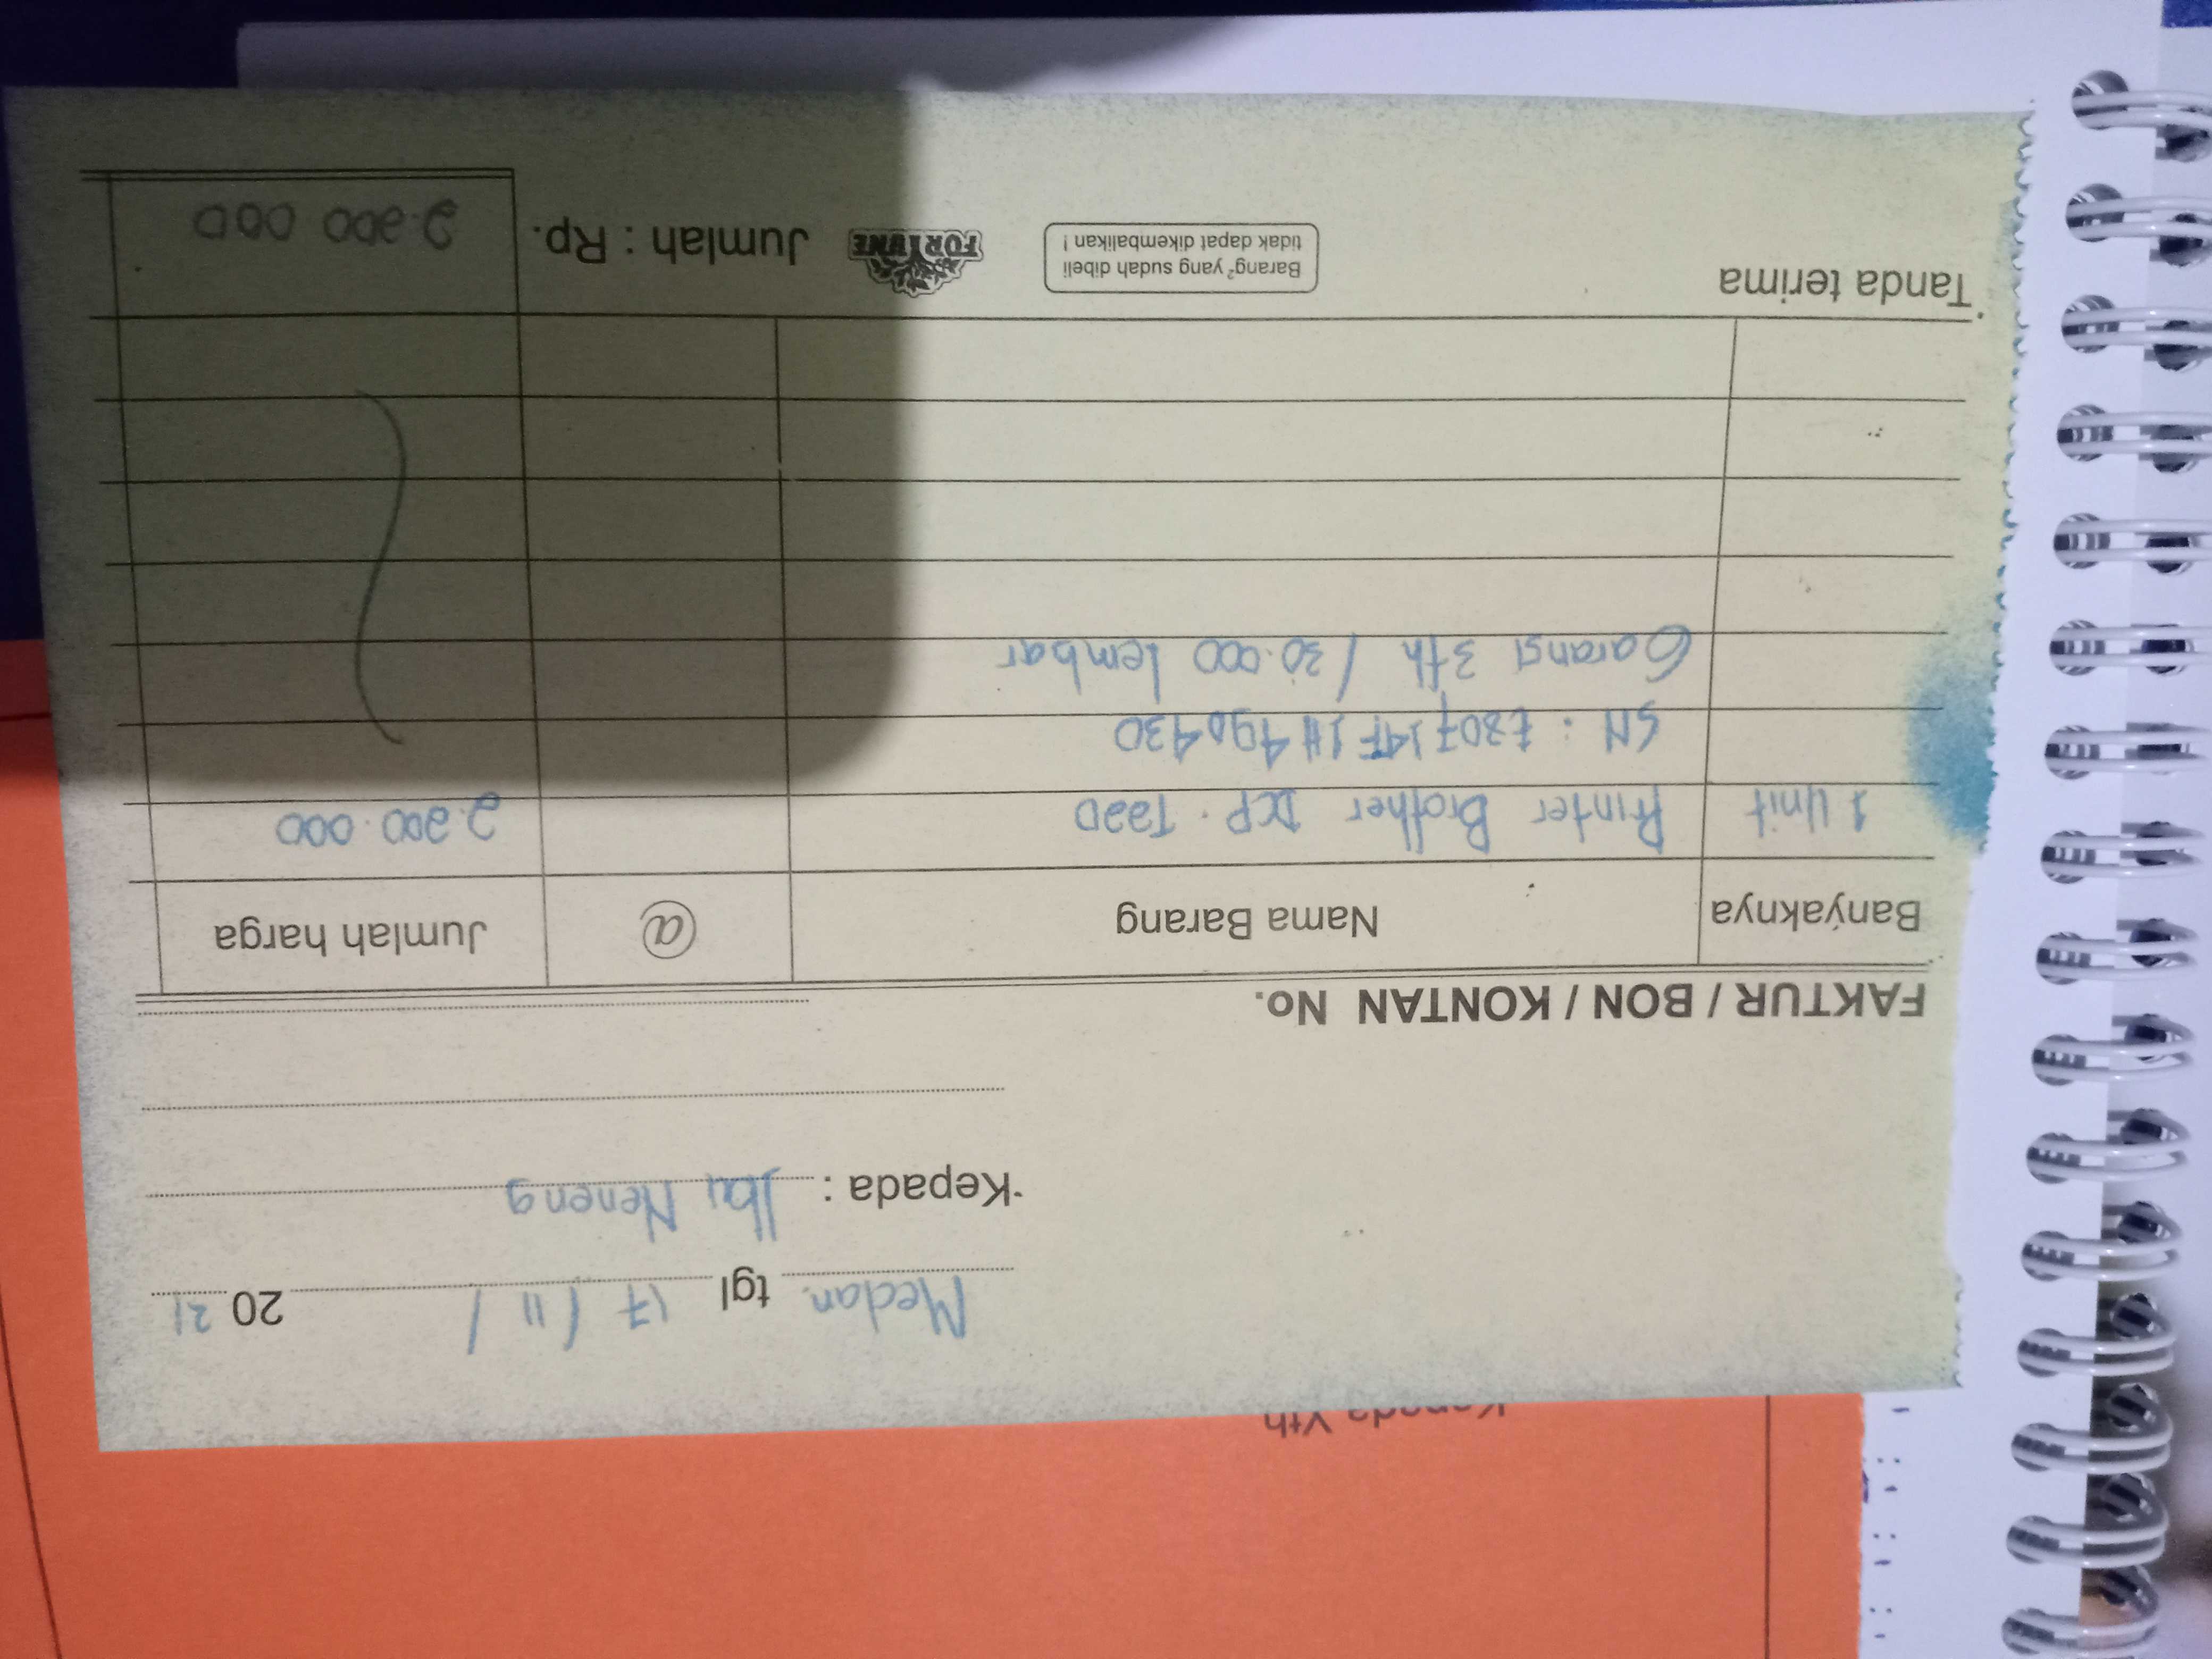 Medan tgl 17 / 11 / 20 21
Kepada : Ibu Neneng
FAKTUR / BON / KONTAN No.
Banyaknya Nama Barang @ Jumlah harga
1 Unit Printer Brother DCP. T220 2.200.000
SN :
Garansi 3 th / 30.000 lembar
Tanda terima
Barang² yang sudah dibeli
tidak dapat dikembalikan !
FORTUNE
Jumlah : Rp. 2.200 000
Kepada Yth